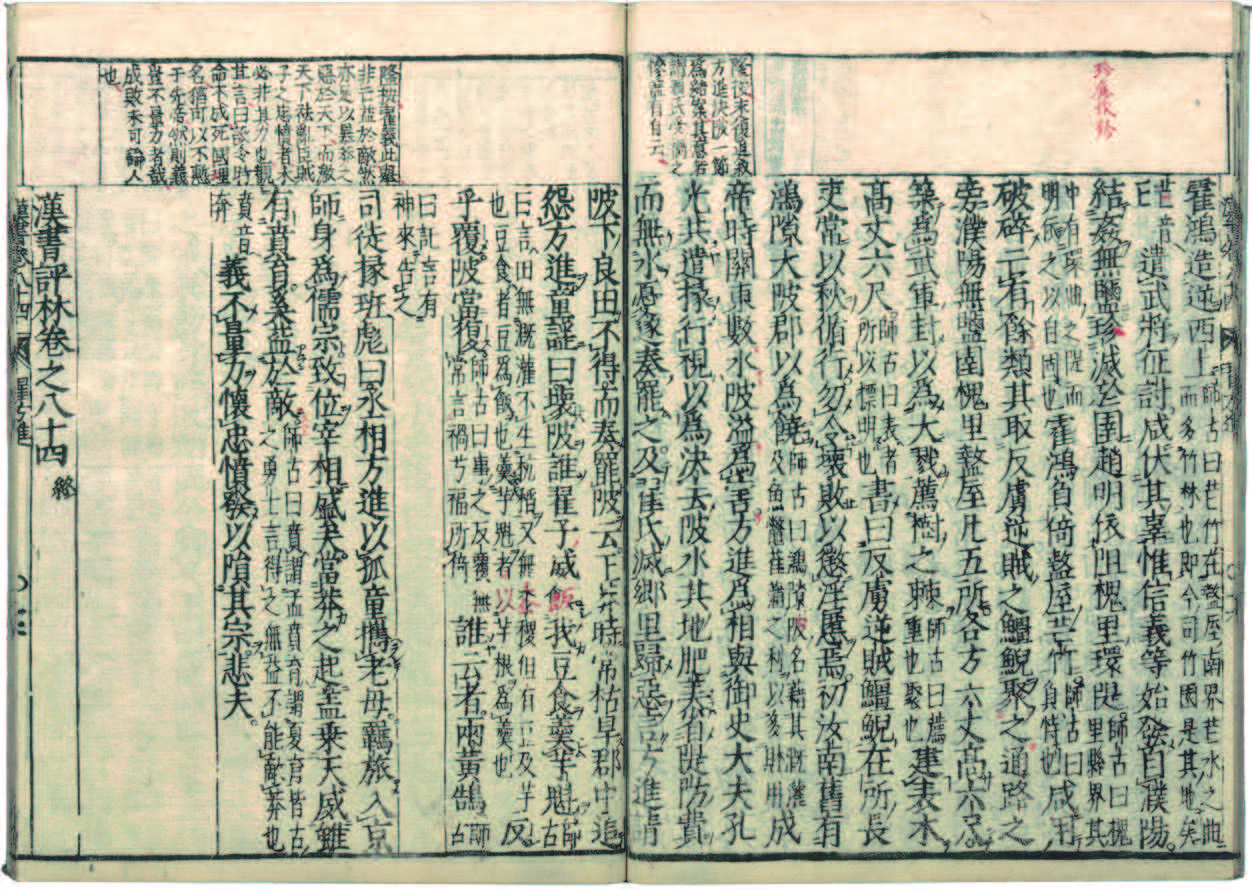 霍鴻造逆西土師古曰芒竹在盩厔南界芒水之曲
而多竹林也即今司竹園是其地矣
遣武將征討咸伏其辜惟信義等始發自濮陽
結姦無鹽殄滅於圉趙明依阻槐里環隄師古曰槐
里縣界其
中有環曲之隄而
明依之以自固也霍鴻負倚盩厔芒竹師古曰
負恃也咸用
破碎亡有餘類其取反虜逆賊之鱷鯢聚之通路之
旁濮陽無鹽圉槐里盩厔凡五所各方六丈高六尺
築為武軍封以為大戮薦樹之棘師古曰薦
重也聚也建表木
高丈六尺師古曰表者
所以標明也書曰反虜逆賊鱷鯢在所長
吏常以秋循行勿令壞敗以懲淫慝焉初汝南舊有
鴻隙大陂郡以為饒師古曰鴻隙陂名藉其溉灌
及魚鱉萑蒲之利以多財用成
帝時關東數水陂溢為害方進為相與御史大夫孔
光共遣掾行視以為決去陂水其地肥美省隄防費
而無水憂遂奏罷之及翟氏滅鄉里歸惡言方進請
隆按末復追敘
方進決陂一節
陂下良田不得而奏罷陂云王莽時常枯旱郡中追
怨方進童謠曰壞陂誰翟子威飯我豆食羹芋魁師古
曰言田無溉灌不生秔稻又無黍稷但有豆及芋
也豆食者豆為飯也羹芋魁者以芋根為羹也反
乎覆陂當復師古曰事之反覆無
常言禍兮福所倚誰云者兩黃鵠師古
曰託言有
神來告之
司徒掾班彪曰丞相方進以孤童攜老母羈旅入京
師身為儒宗致位宰相盛矣當莽之起蓋乘天威雖
有賁育奚益於敵師古曰賁謂孟賁育謂夏育皆古
之勇士言得之無益不能敵莽也
賁音
奔義不量力懷忠憤發以隕其宗悲夫
隆按翟義此舉
非亡益於敵然
亦足以暴莽之
惡於天下而敵
天下
子之忠憤者
必非其力也觀
其言曰設令時
命不成死國埋
名猶可以不慙
于先帝然則義
豈不量力者哉
成敗未可論人
也
漢書評林卷之八十四 終